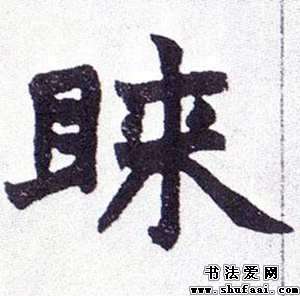 睐
书法爱网
www.shufaai.com